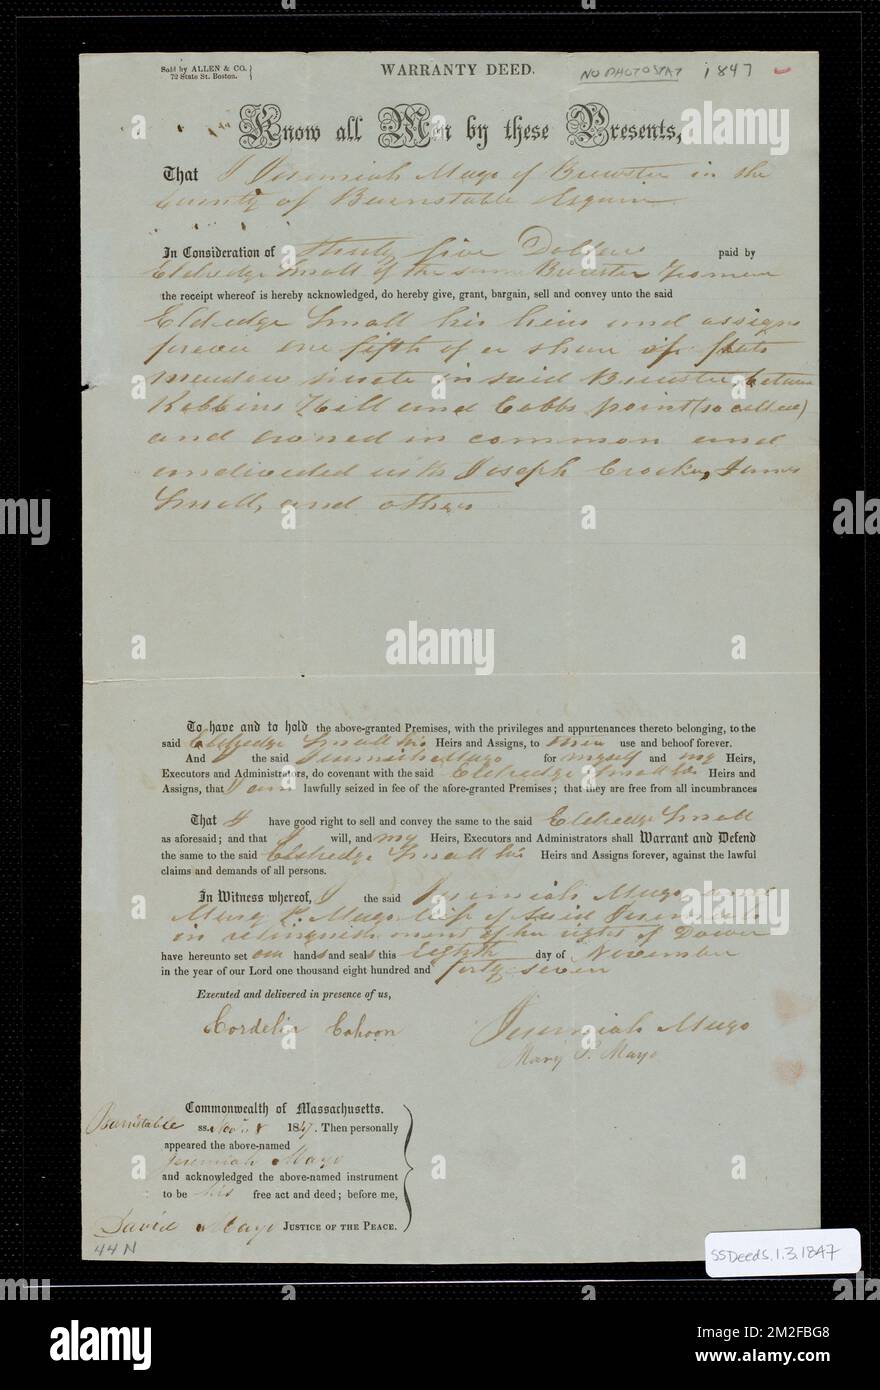 Sold by ALLEN & CO.
72 State St. Boston.
WARRANTY DEED.
NO PHOTOSTAT 1847
Know all Men by these Presents,
That I Jeremiah Mayo of Brewster in the
County of Barnstable Esquire
In Consideration of thirty five Dollars paid by
Eldredge Small of the same Brewster Yeoman
the receipt whereof is hereby acknowledged, do hereby give, grant, bargain, sell and convey unto the said
Eldredge Small his heirs and assigns
forever one fifth of a share of flats
meadow situate in said Brewster between
Robbins Hill and Cobbs point (so called)
and owned in common and
undivided with Joseph Crocker, James
Small, and others
To have and to hold the above-granted Premises, with the privileges and appurtenances thereto belonging, to the
said Eldredge Small his Heirs and Assigns, to their use and behoof forever.
And I the said Jeremiah Mayo for myself and my Heirs,
Executors and Administrators, do covenant with the said Eldredge Small his Heirs and
Assigns, that I am lawfully seized in fee of the afore-granted Premises; that they are free from all incumbrances
That I have good right to sell and convey the same to the said Eldredge Small
as aforesaid; and that I will, and my Heirs, Executors and Administrators shall Warrant and Defend
the same to the said Eldredge Small his Heirs and Assigns forever, against the lawful
claims and demands of all persons.
In Witness whereof, I the said Jeremiah Mayo and
Mary P. Mayo wife of said Jeremiah
in relinquishment of her right of Dower
have hereunto set our hands and seals this Eighth day of November
in the year of our Lord one thousand eight hundred and forty seven
Executed and delivered in presence of us,
Cordelia Cahoon Jeremiah Mayo
Mary P. Mayo
Commonwealth of Massachusetts.
Barnstable ss. Nov. 8 1847. Then personally
appeared the above-named
Jeremiah Mayo
and acknowledged the above-named instrument
to be his free act and deed; before me,
David Mayo JUSTICE OF THE PEACE.
44 N
SSDeeds.1.3.1847
alamy
alamy
Image ID: 2M2FBG8
www.alamy.com